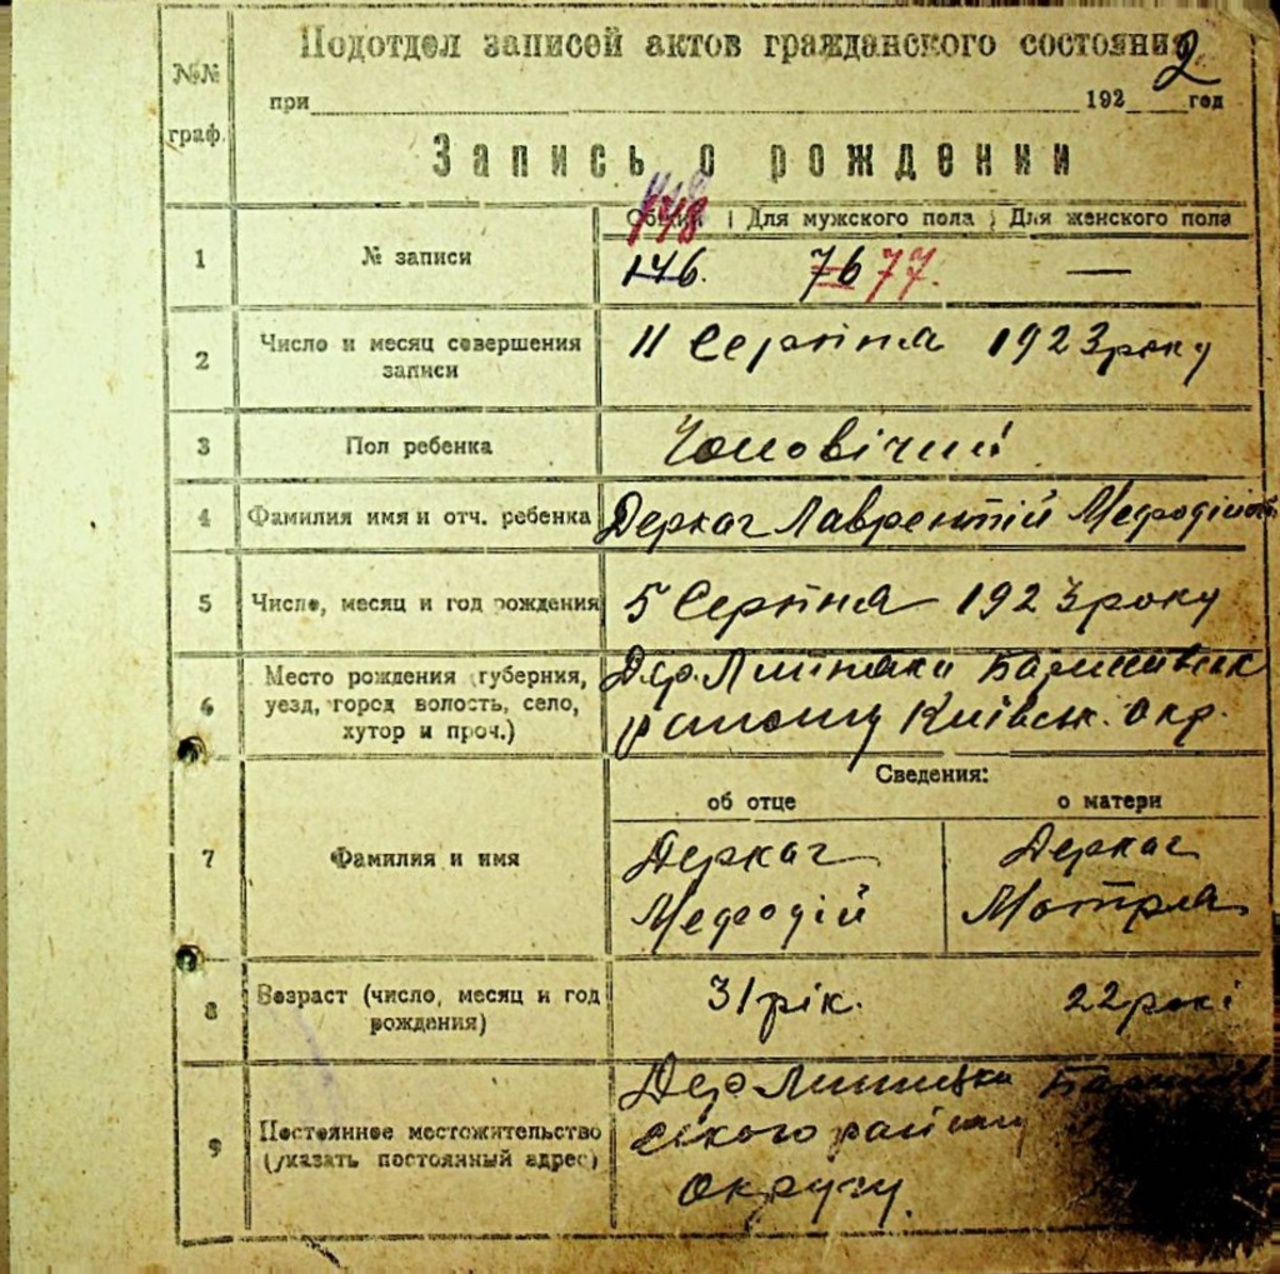 2
Подотдел записей актов гражданского состояния
№№
граф.
при 192 год
Запись о рождении
Общий Для мужского пола Для женского пола
148
1 № записи 146. 76 77. —
2 Число и месяц совершения
записи
11 Серпня 1923 року
3 Пол ребенка Чоловічий
4 Фамилия имя и отч. ребенка Деркач Лаврентій
5 Число, месяц и год рождения 5 Серпня 1923 року
6 Место рождения (губерния,
уезд, город волость, село,
хутор и проч.)
Дер.
Київськ. Окр.
Сведения:
об отце о матери
7 Фамилия и имя
Деркач Деркач
Мефодій Мотря
8 Возраст (число, месяц и год
рождения)
31 рік. 22 рокі
9 Постоянное местожительство
(указать постоянный адрес)
Дер
ського району
округу.